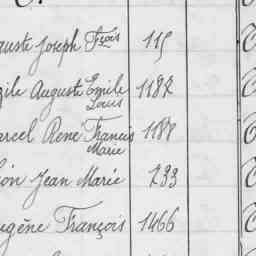 guste Joseph Fçois 115
zile Auguste Emile
Louis
arcel René Francis
Marie
éon Jean Marie 233
ugène François 1466